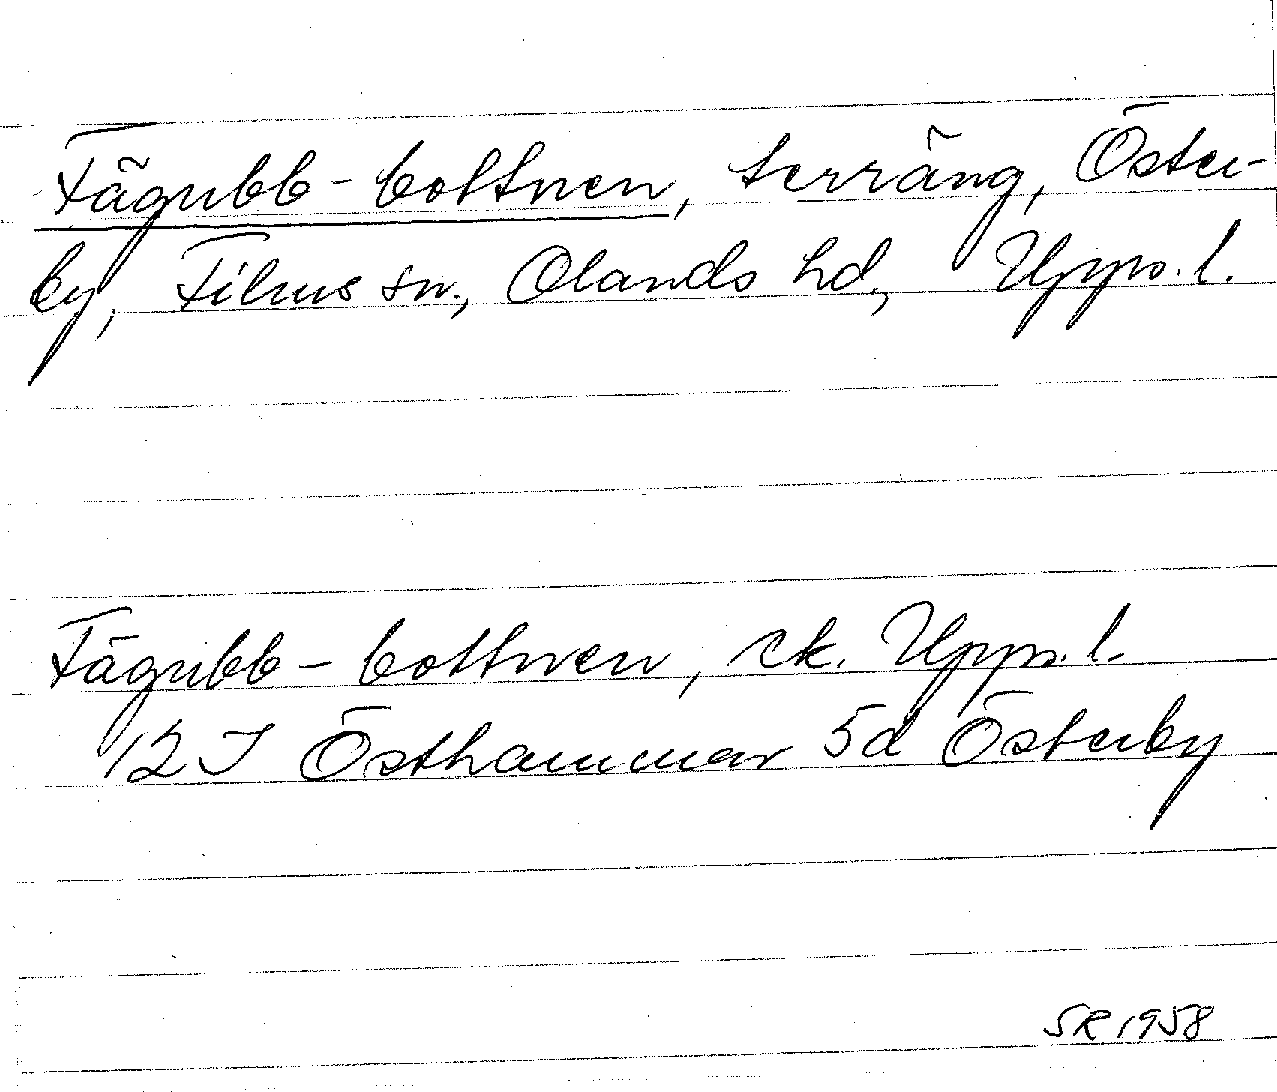 Fägubb-bottnen, terräng, Öster-
by, Films sn., Olands hd., Upps. l.
Fägubb-bottnen, ek. Upps. l.
12 I Östhammar 5d Österby
SR 1958